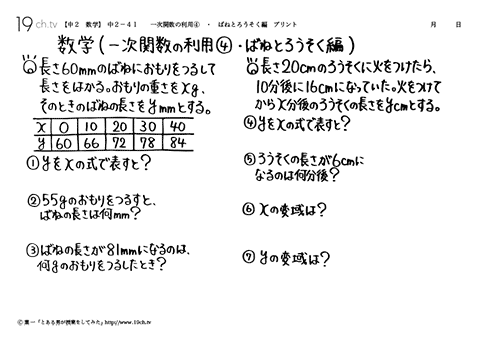 19ch.tv 【中2 数学】 中2-41 一次関数の利用④ ・ ばねとろうそく編 プリント 月 日
数学(一次関数の利用④・ばねとろうそく編)
長さ60mmのばねにおもりをつるして
長さをはかる。おもりの重さをxg、
そのときのばねの長さをymmとする。
x 0 10 20 30 40
y 60 66 72 78 84
①yをxの式で表すと?
②55gのおもりをつるすと、
ばねの長さは何mm?
③ばねの長さが81mmになるのは、
何gのおもりをつるしたとき?
長さ20cmのろうそくに火をつけたら、
10分後に16cmになっていた。火をつけて
からx分後のろうそくの長さをycmとする。
④yをxの式で表すと?
⑤ろうそくの長さが6cmに
なるのは何分後?
⑥xの変域は?
⑦yの変域は?
Ⓒ葉一「とある男が授業をしてみた」http://www.19ch.tv